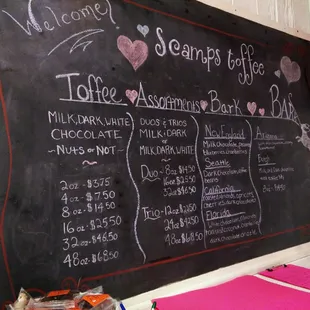 Welcome
Scamps toffee
Toffee Assortments Bark Bars
MILK, DARK, WHITE
CHOCOLATE
~NUTS OR NOT~
2oz - $3.75
4oz - $7.50
8oz - $14.50
16oz - $25.50
32oz - $46.50
48oz - $68.50
DUOS & TRIOS
MILK & DARK
OR
MILK, DARK, WHITE
Duo - 8oz $14.50
16oz $25.50
32oz $46.50
Trio - 12oz
24oz
48oz $68.50
New England
Milk Chocolate,
Seattle
Dark Chocolate,
beans
California
Florida
dark chocolate
Arizona